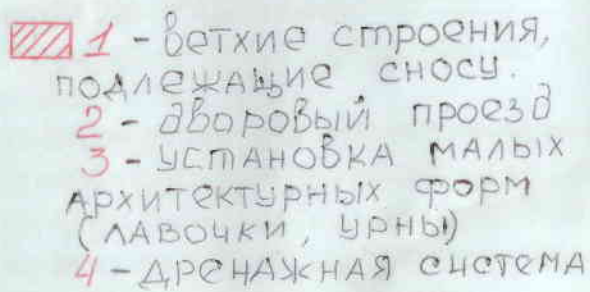 1 - ветхие строения,
подлежащие сносу.
2 - дворовый проезд
3 - установка малых
архитектурных форм
(лавочки, урны)
4 - дренажная система